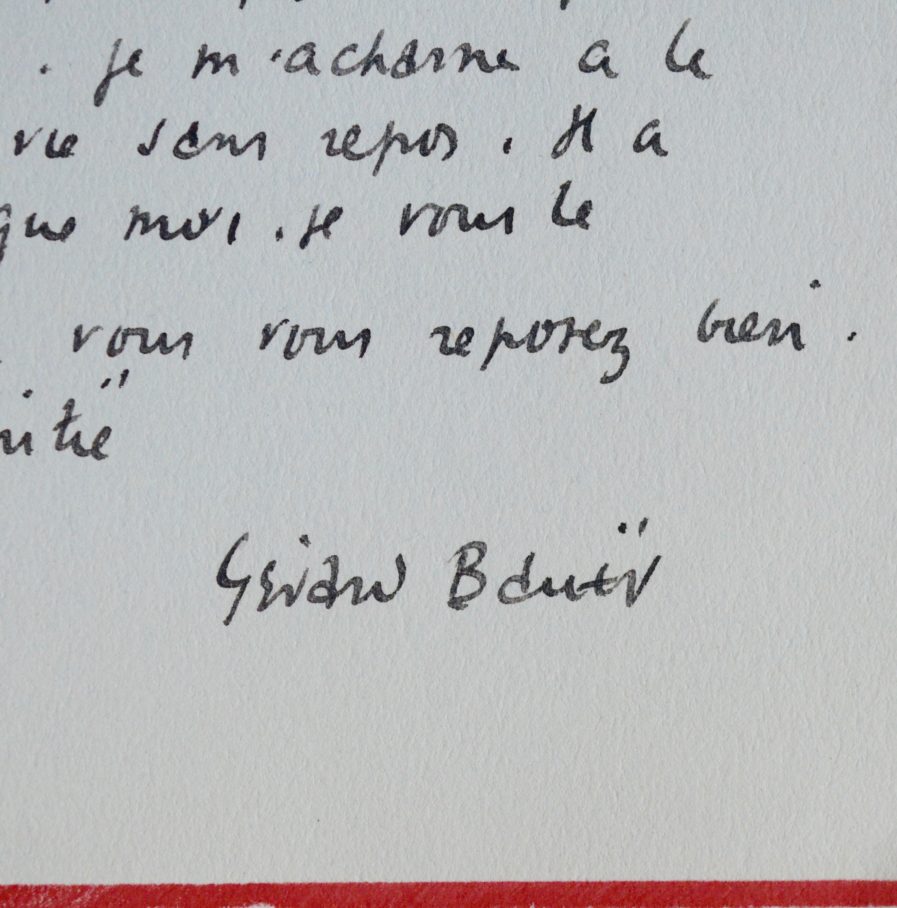 . je m'acharne a la
vie sans repos. Il a
que moi. je vous le
vous vous reposez bien.
Gérard Bauër